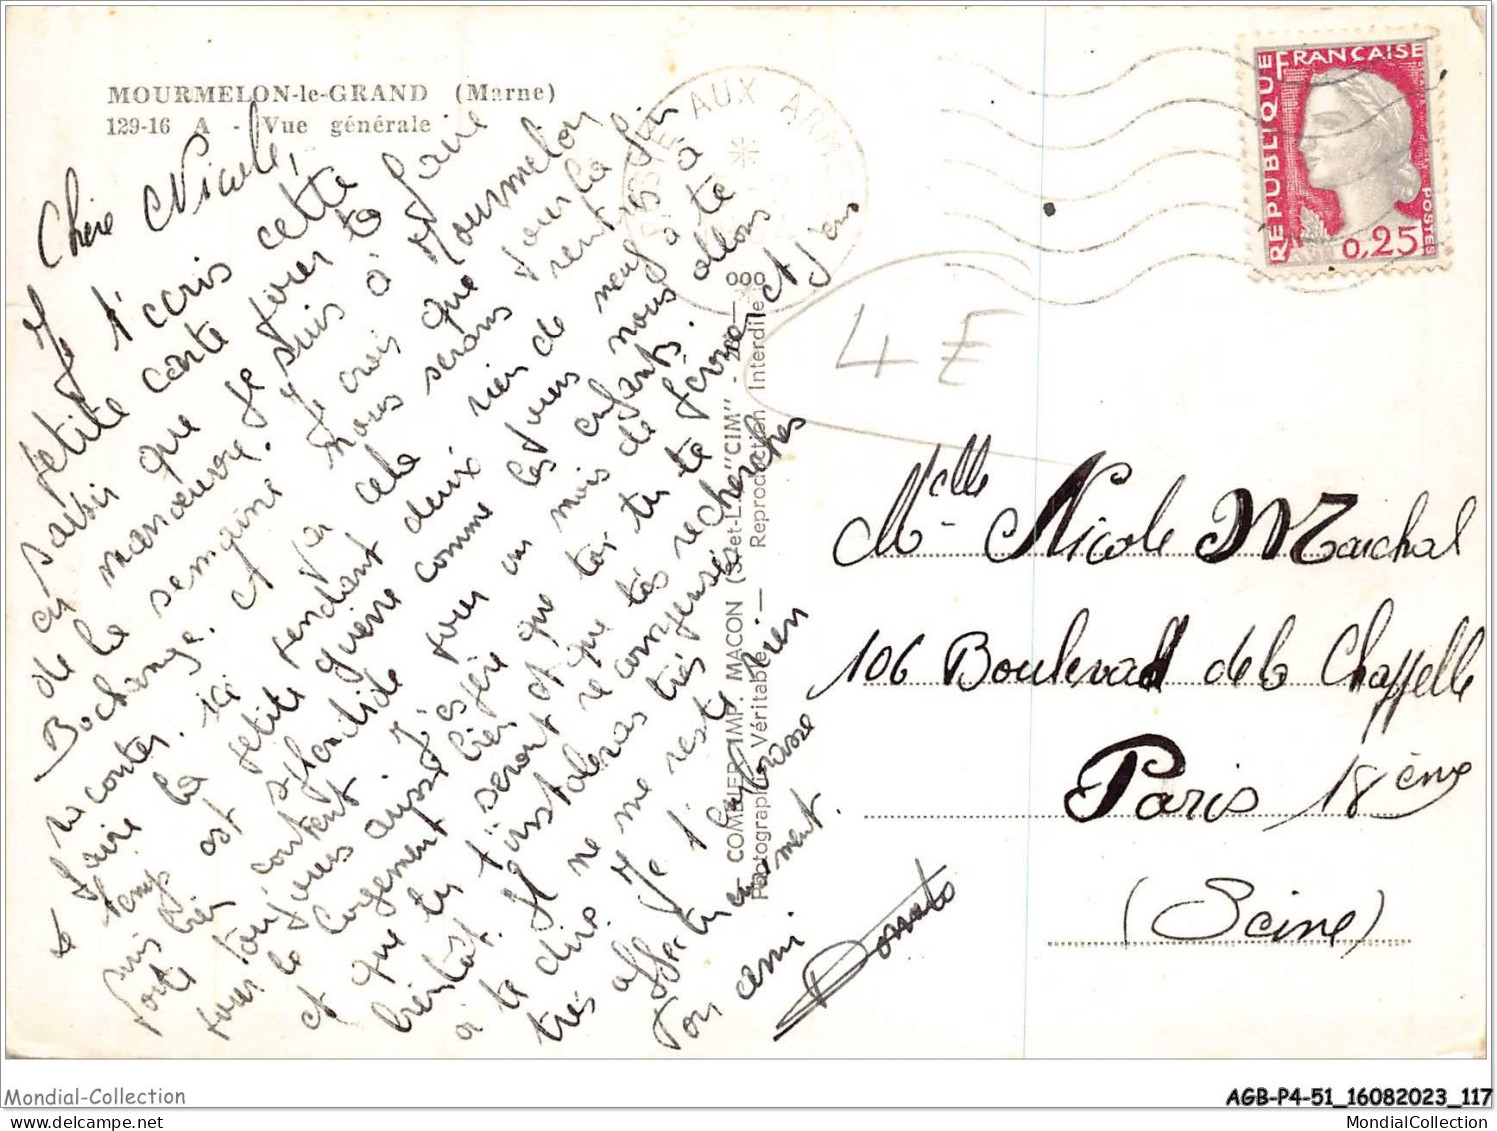 MOURMELON-le-GRAND (Marne)
129-16 A - Vue générale
Chère Nicole,
Je t'ecris cette
petite carte pour te faire
savoir que je suis à Mourmelon
en manœuvre. Je crois que pour la fin
de la semaine nous serons rentrés à
Bochange. et j'ai cela rien de neuf à te
raconter. ici pendant deux jours nous allons
faire la petite guerre comme les enfants. et j'en
suis bien content pour un mois de février
temps est splendide
toujours aussi bien
Toute J'espère que toi tu te
pour le logement et que tes recherches
et que tu seront récompensé
bientôt t'installeras très bien
à te dire. Il ne me reste rien
très affectueusement. Je t'embrasse
Ton ami
Donato
COMBIER IMP. MACON (S.-et-L.) "CIM"
Photographie Véritable — Reproduction Interdite
POSTE AUX ARMEES
REPUBLIQUE FRANÇAISE
POSTES
0,25
4 E
Melle Nicole Marchal
106 Boulevard de la Chappelle
Paris 18ème
(Seine)
Mondial-Collection
AGB-P4-51_16082023_117
MondialCollection.com